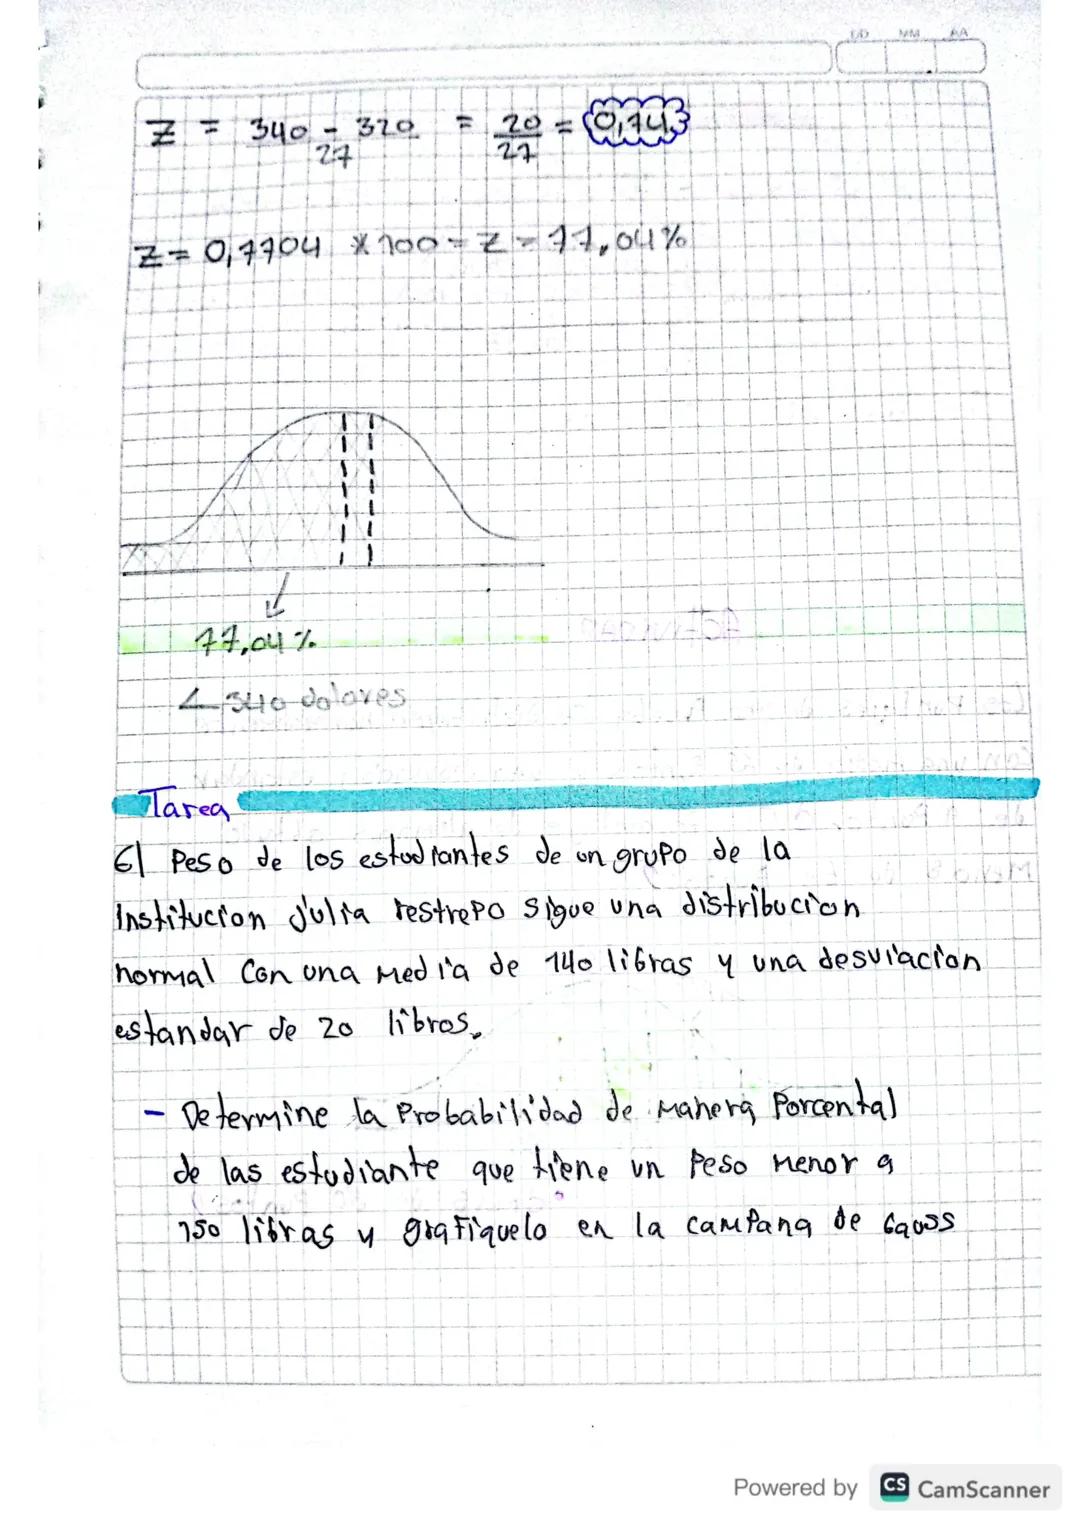 DD MM AA
Z = 340 - 320 = 20 = 0,743
27 27
Z = 0,7704 × 100 = Z = 77,04%
77,04 %
∠ 340 dolares
Tarea
El Peso de los estudiantes de un grupo de la
institucion Julia restrepo sigue una distribucion
normal Con una Media de 140 libras y una desviacion
estandar de 20 libros.
- Determine la Probabilidad de Manera Porcental
de las estudiante que tiene un Peso Menor a
150 libras y grafiquelo en la campana de Gauss
Powered by CS CamScanner